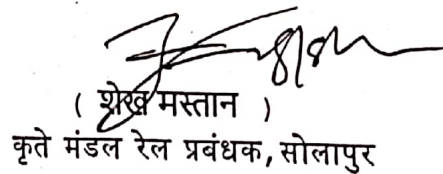 ( शेख मस्तान )
कृते मंडल रेल प्रबंधक, सोलापुर